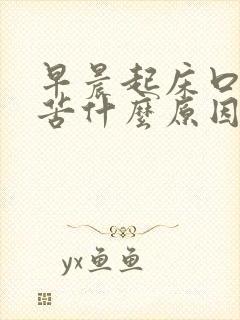 早晨起床口
苦什麼原因
yx鱼鱼